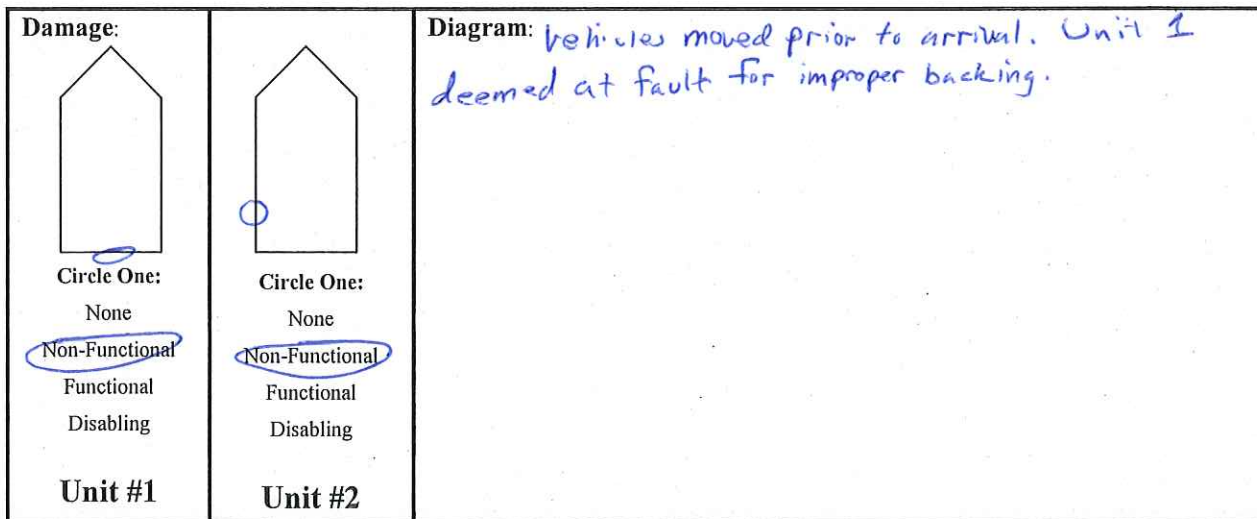 Damage:
Circle One:
None
Non-Functional
Functional
Disabling
Unit #1
Circle One:
None
Non-Functional
Functional
Disabling
Unit #2
Diagram: Vehicles moved prior to arrival. Unit 1
deemed at fault for improper backing.